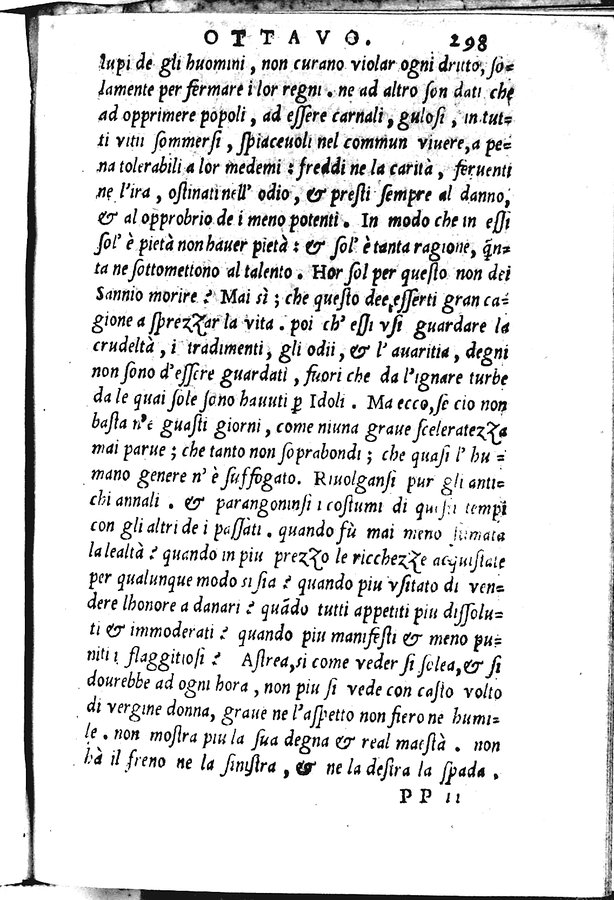 OTTAVO. 298
lupi de gli huomini, non curano violar ogni dritto, ſo⸗
lamente per fermare i lor regni. ne ad altro ſon dati che
ad opprimere popoli, ad eſſere carnali, guloſi, in tut⸗
ti vitii ſommerſi, ſpiaceuoli nel commun viuere, a pe⸗
na tolerabili a lor medemi: freddi ne la carità, feruenti
ne l'ira, oſtinati nell' odio, & preſti ſempre al danno,
& al opprobrio de i meno potenti. In modo che in eſſi
ſol' è pietà non hauer pietà: & ſol' è tanta ragione, q̃n⸗
ta ne ſottomettono al talento. Hor ſol per queſto non dei
Sannio morire? Mai sì; che queſto dee eſſerti gran ca⸗
gione a ſprezzar la vita. poi ch' eſſi vſi guardare la
crudeltà, i tradimenti, gli odii, & l' auaritia, degni
non ſono d'eſſere guardati, fuori che da l'ignare turbe
da le quai ſole ſono hauuti ꝑ Idoli. Ma ecco, ſe cio non
baſta n'e guaſti giorni, come niuna graue ſceleratezza
mai parue; che tanto non ſoprabondi; che quaſi l' hu⸗
mano genere n' è ſuffogato. Riuolganſi pur gli anti⸗
chi annali. & parangoninſi i coſtumi di queſti tempi
con gli altri de i paſſati. quando fù mai meno ſtimata
la lealtà? quando in piu prezzo le ricchezze acquiſtate
per qualunque modo si ſia? quando piu vſitato di ven⸗
dere lhonore a danari? quãdo tutti appetiti piu diſſolu⸗
ti & immoderati? quando piu manifeſti & meno pu⸗
niti i flaggitioſi? Aſtrea, si come veder ſi ſolea, & ſi
dourebbe ad ogni hora, non piu ſi vede con caſto volto
di vergine donna, graue ne l'aſpetto non fiero ne humi⸗
le. non moſtra piu la ſua degna & real maeſtà. non
hà il freno ne la ſiniſtra, & ne la deſtra la ſpada.
PP ii